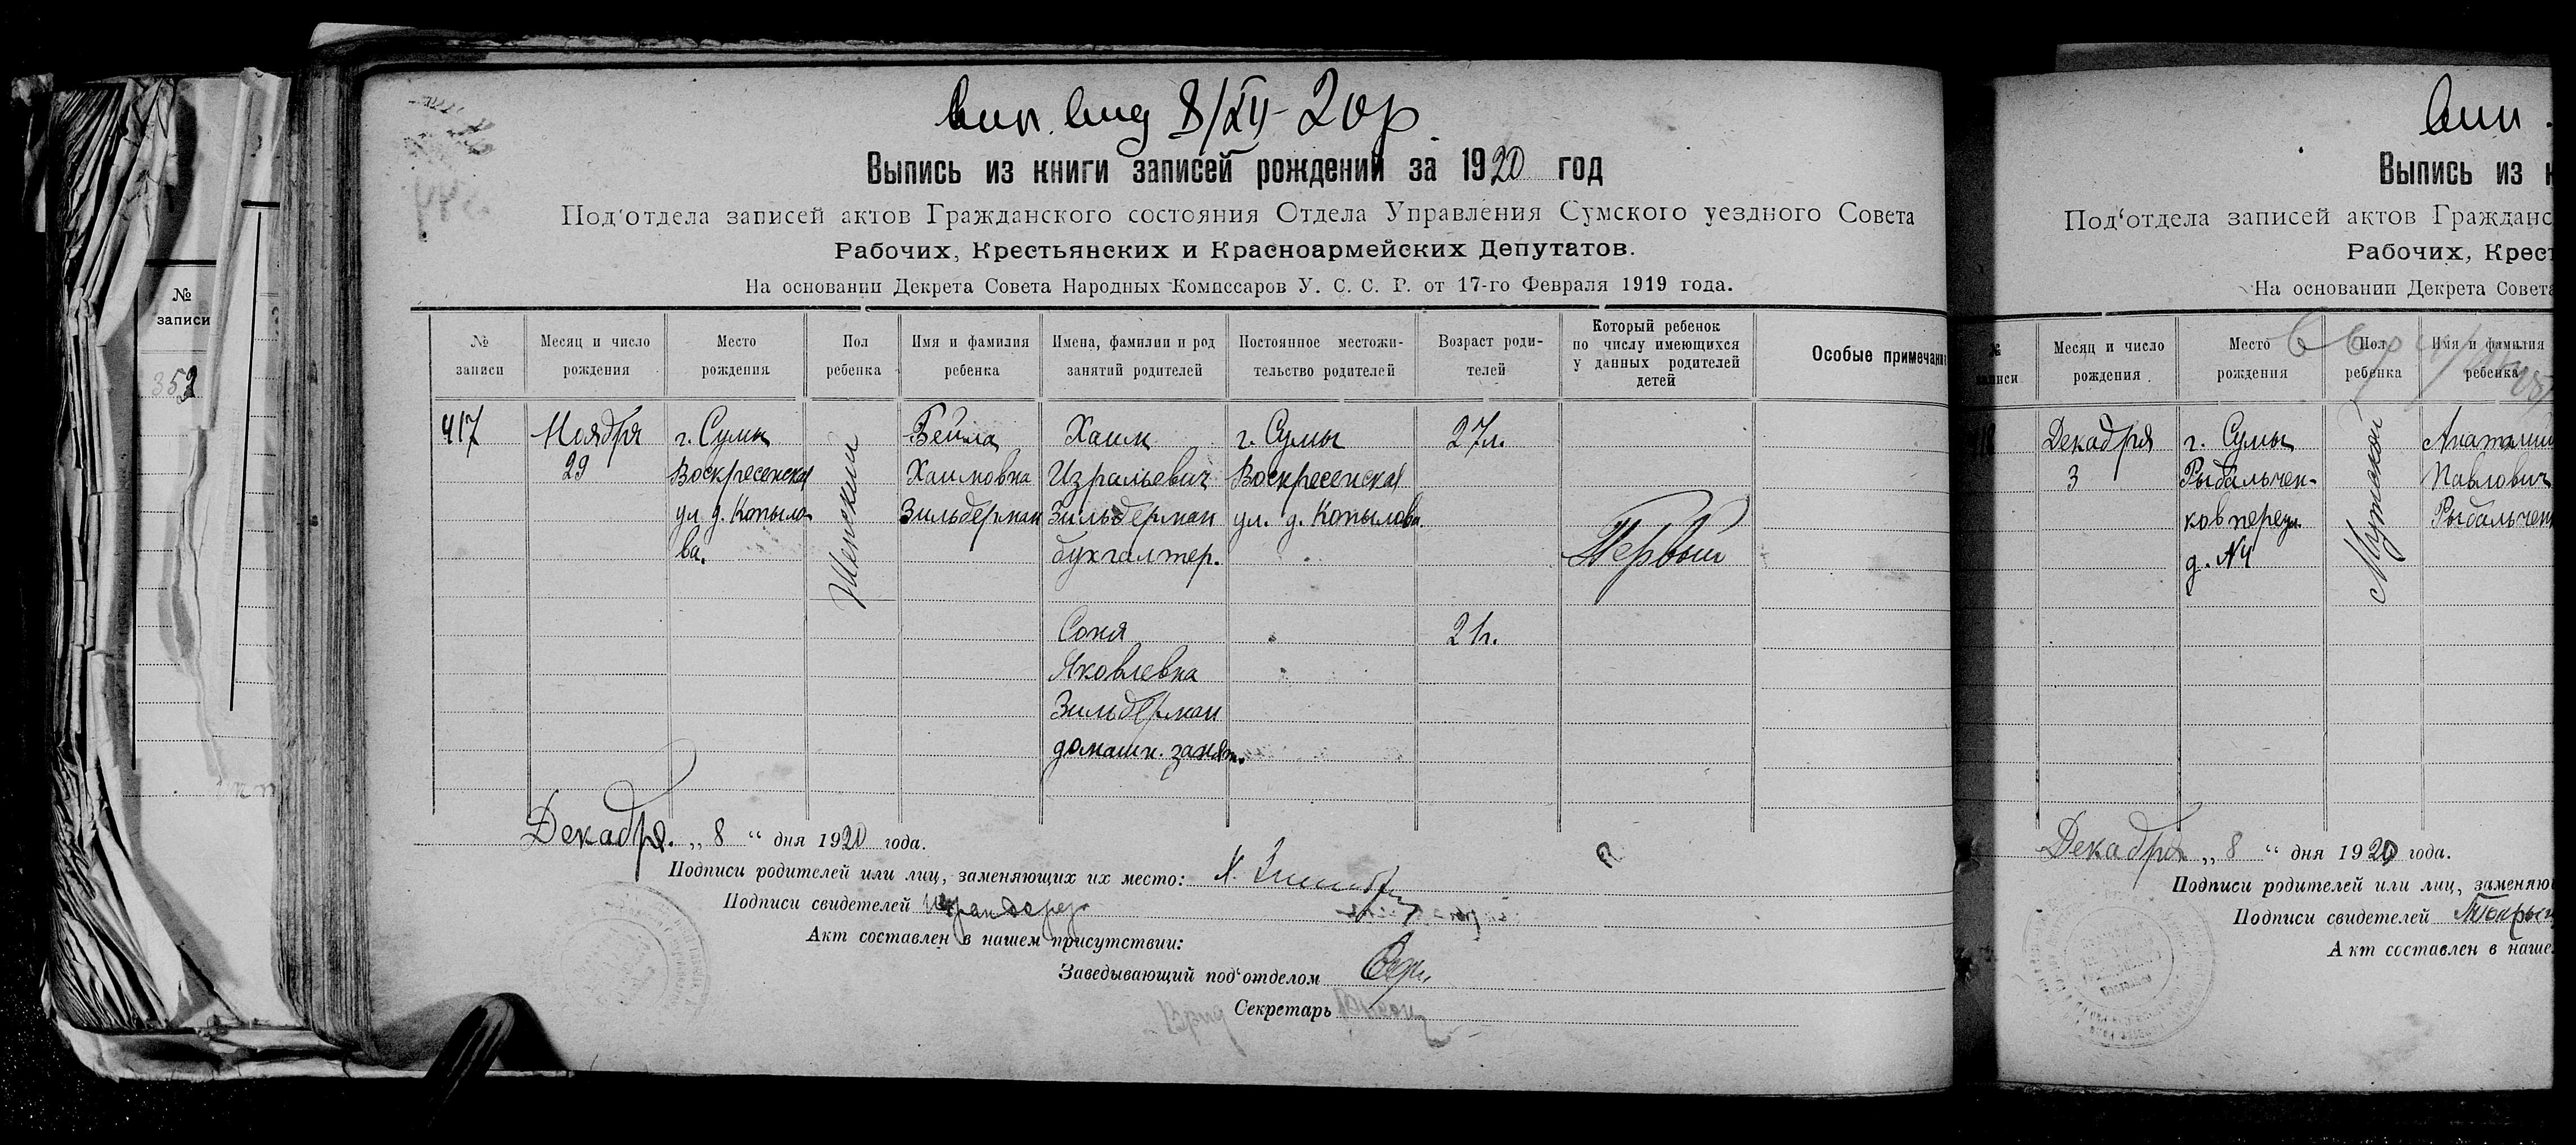 вып. выд 8/XII-20 р
Выпись из книги записей рождений за 1920 год
Под'отдела записей актов Гражданского состояния Отдела Управления Сумского уездного Совета
Рабочих, Крестьянских и Красноармейских Депутатов.
На основании Декрета Совета Народных Комиссаров У. С. С. Р. от 17-го Февраля 1919 года.
№ записи
Месяц и число рождения
Место рождения
Пол ребенка
Имя и фамилия ребенка
Имена, фамилии и род занятий родителей
Постоянное местожи-
тельство родителей
Возраст роди-
телей
Который ребенок
по числу имеющихся
у данных родителей
детей
Особые примечани
417
Ноября
29
г. Сумы
Воскресенская
ул. д. Копыло-
ва.
Женский
Бейла
Хаимовна
Зильберман
Хаим
Изральевич
Зильберман
бухгалтер.
Соня
Яковлевна
Зильберман
домашн. занят.
г. Сумы
Воскресенская
ул. д. Копылова
27л.
21г.
Первый
Декабря „ 8 “ дня 1920 года.
Подписи родителей или лиц, заменяющих их место:
Подписи свидетелей
Акт составлен в нашем присутствии:
Заведывающий под'отделом
Секретарь
№
записи
353
вып.
Выпись из к
Под'отдела записей актов Гражданс
Рабочих, Крест
На основании Декрета Совета
№
записи
Месяц и число
рождения
Место
рождения
Пол
ребенка
Имя и фамилия
ребенка
Декабря
3
г. Сумы
Рыбальчен-
ков переул.
д. №4
Мужской
Анатолий
Павлович
Рыбальчен
Декабря „ 8 “ дня 1920 года.
Подписи родителей или лиц, заменяю
Подписи свидетелей
Акт составлен в наше